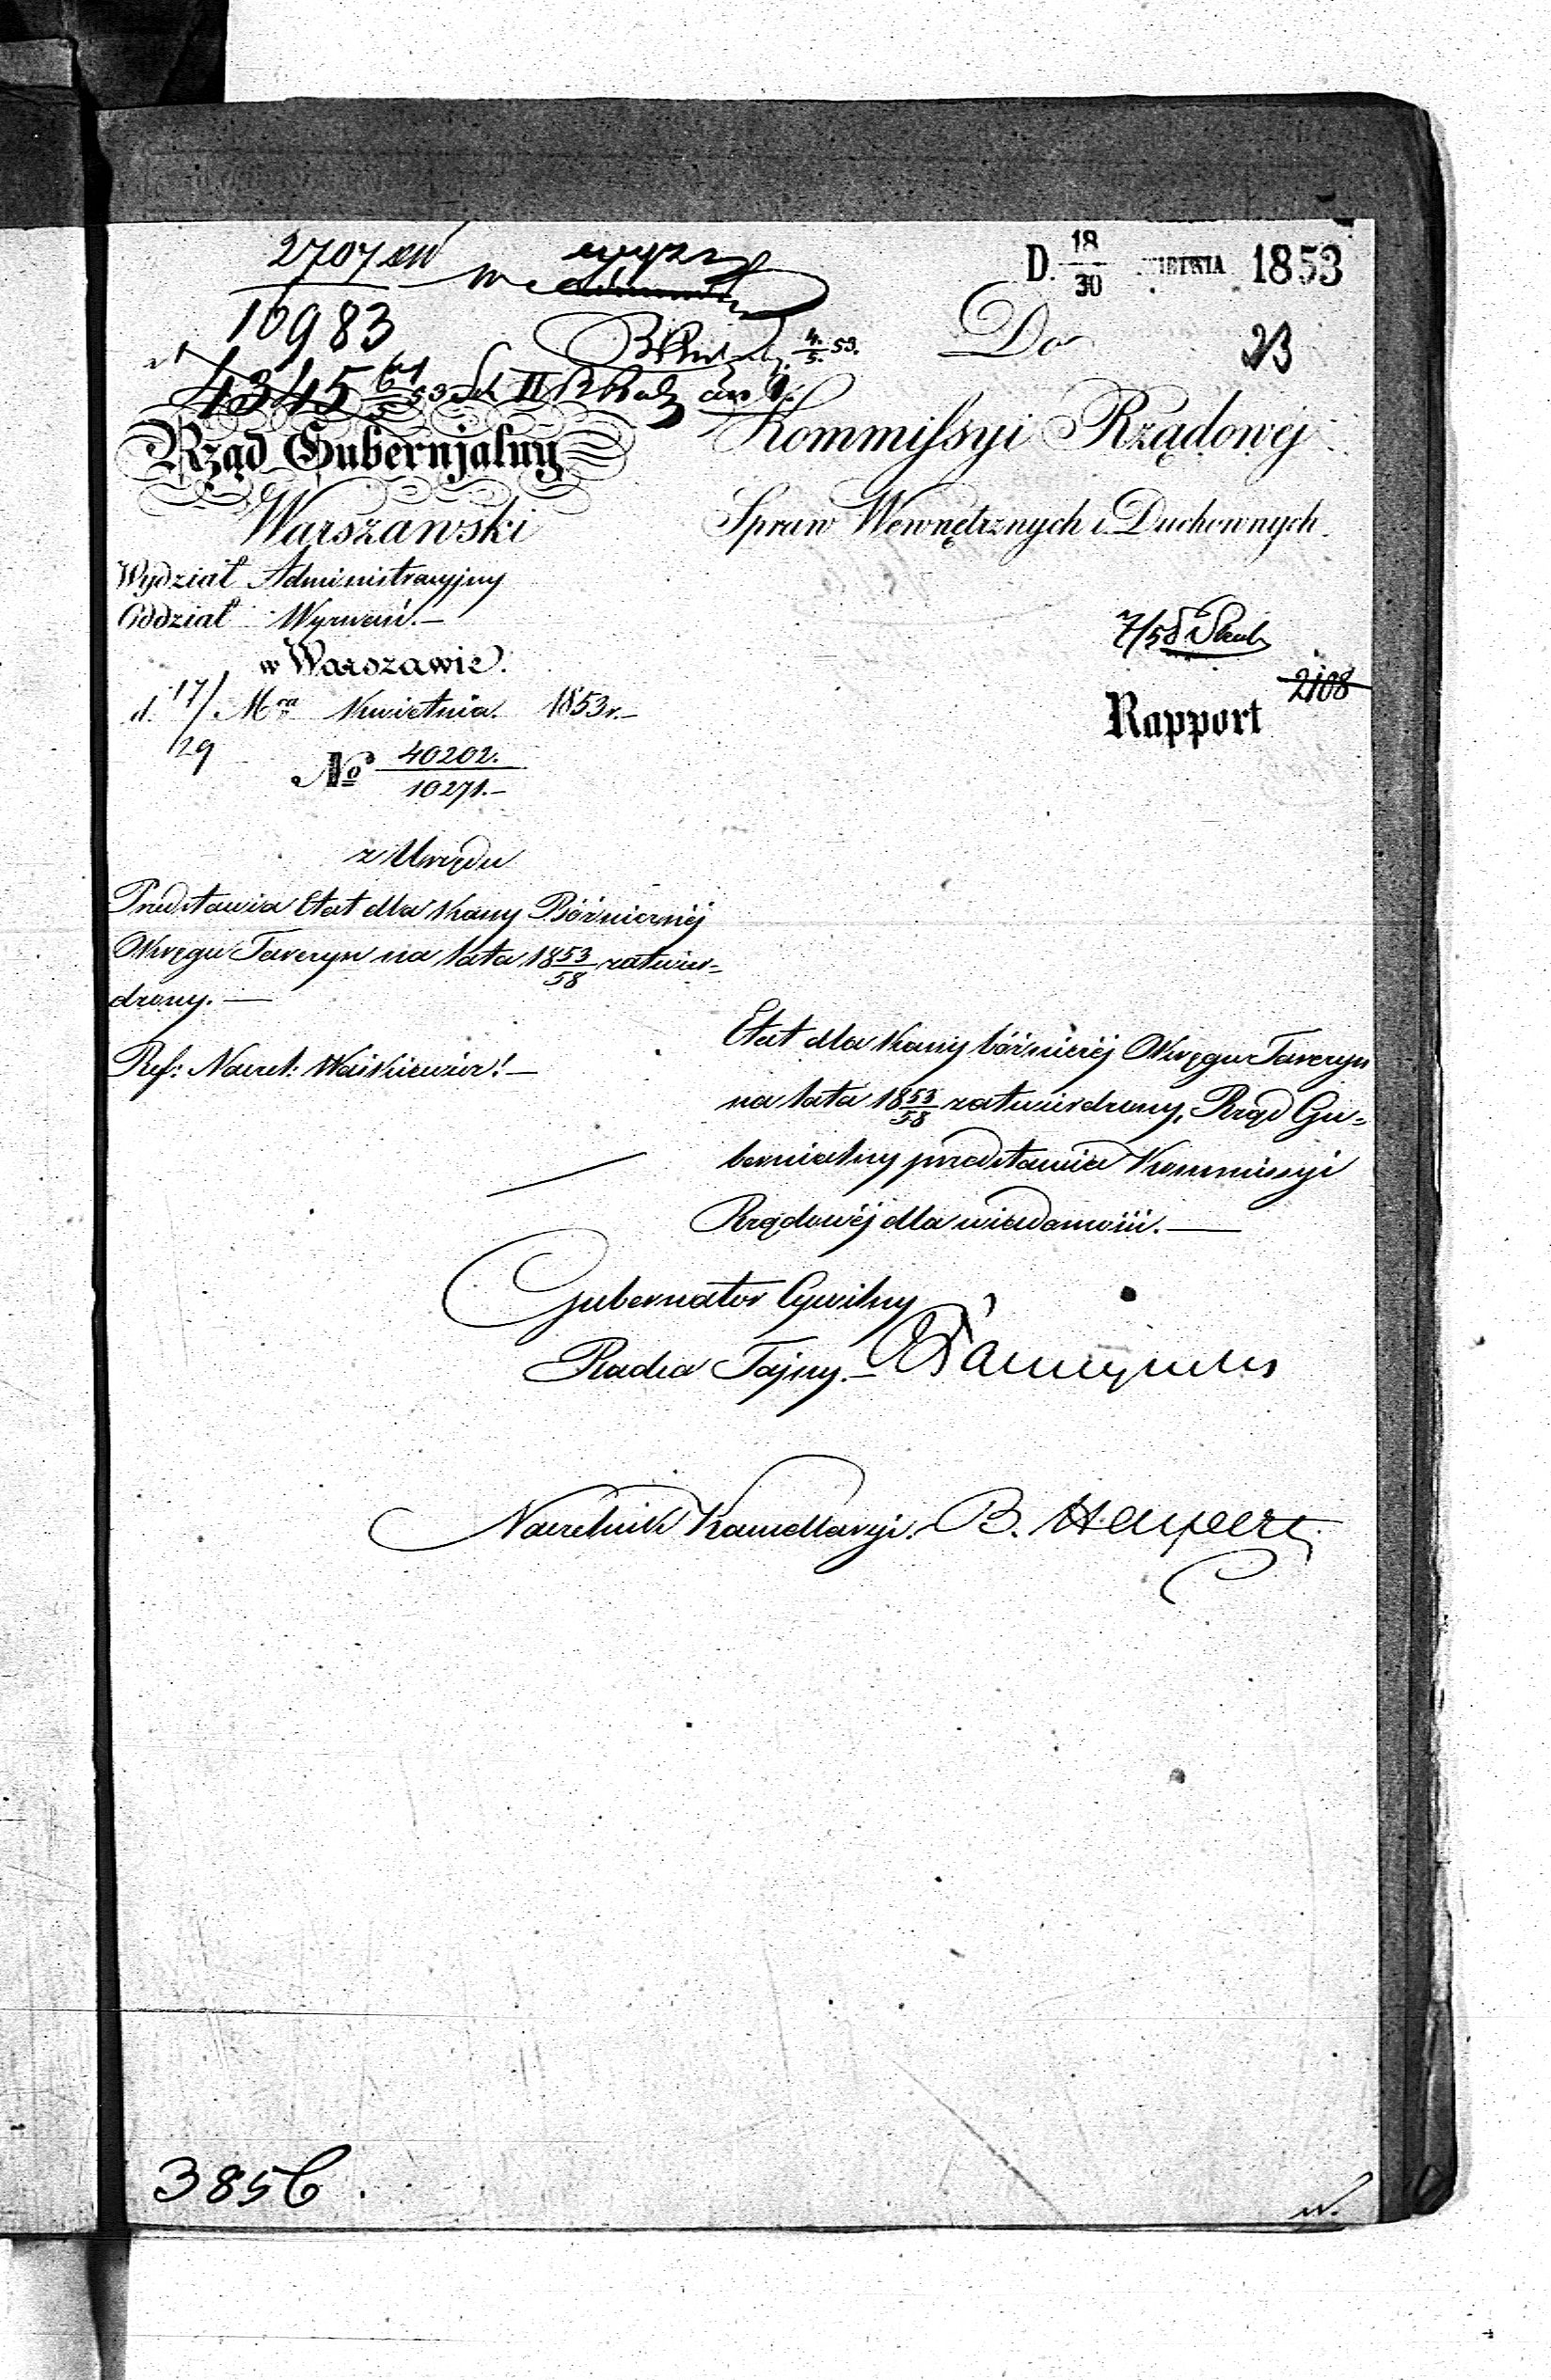 2707
16983
4345
D. 18/30 KWIETNIA 1853
4./5. 53.
Do
23
Rząd Gubernjalny
Warszawski
Kommissyi Rządowéj
Spraw Wewnętrznych i Duchownych.
Wydział Administracyjny
Oddział Wyznań.—
w Warszawie.
d. 17/29 Mca Kwietnia. 1853r.—
No 40202./10271.—
7/58
2108
Rapport
z Urzędu
Przedstawia Etat dla Kassy Bóżniczéj
Okręgu Tarczyn na lata 1853/58 zatwier=
dzony.—
Ref: Naczel: Waśkiewicz.—
Etat dla Kassy bóżniczéj Okręgu Tarczyn
na lata 1853/58 zatwierdzony, Rząd Gu=
bernialny przedstawia Kommissyi
Rządowéj dla wiadomości.—
Gubernator Cywilny
Radca Tajny.—
Naczelnik Kancellaryi. B. Halpert
3856.